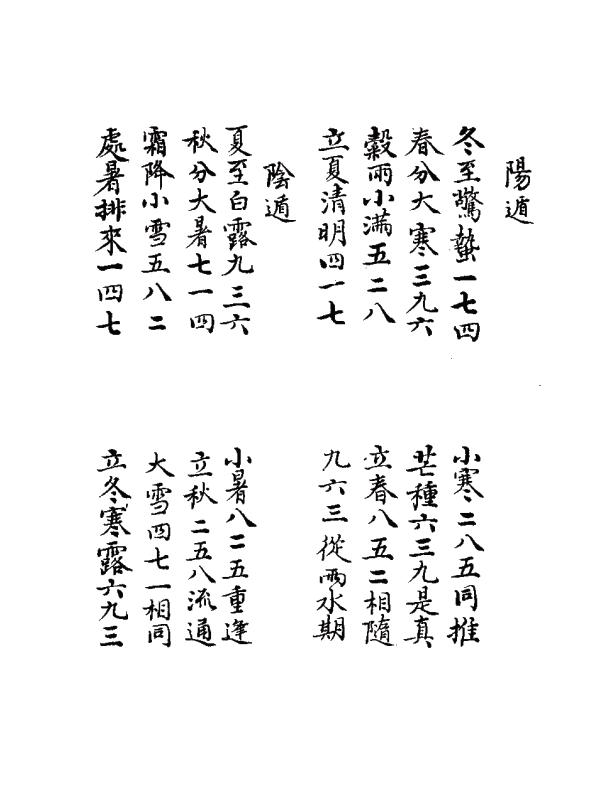 陽遁
冬至驚蟄一七四
小寒二八五同推
春分大寒三九六
芒種六三九是真
穀雨小滿五二八
立春八五二相隨
立夏清明四一七
九六三從雨水期
陰遁
夏至白露九三六
小暑八二五重逢
秋分大暑七一四
立秋二五八流通
霜降小雪五八二
大雪四七一相同
處暑排來一四七
立冬寒露六九三